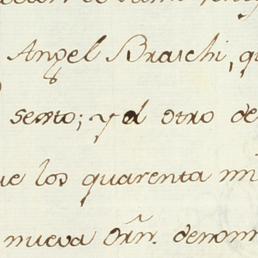 Angel Braschi, qu
sexto; y el otro de
ue los quarenta mi
nueva orñ. denom